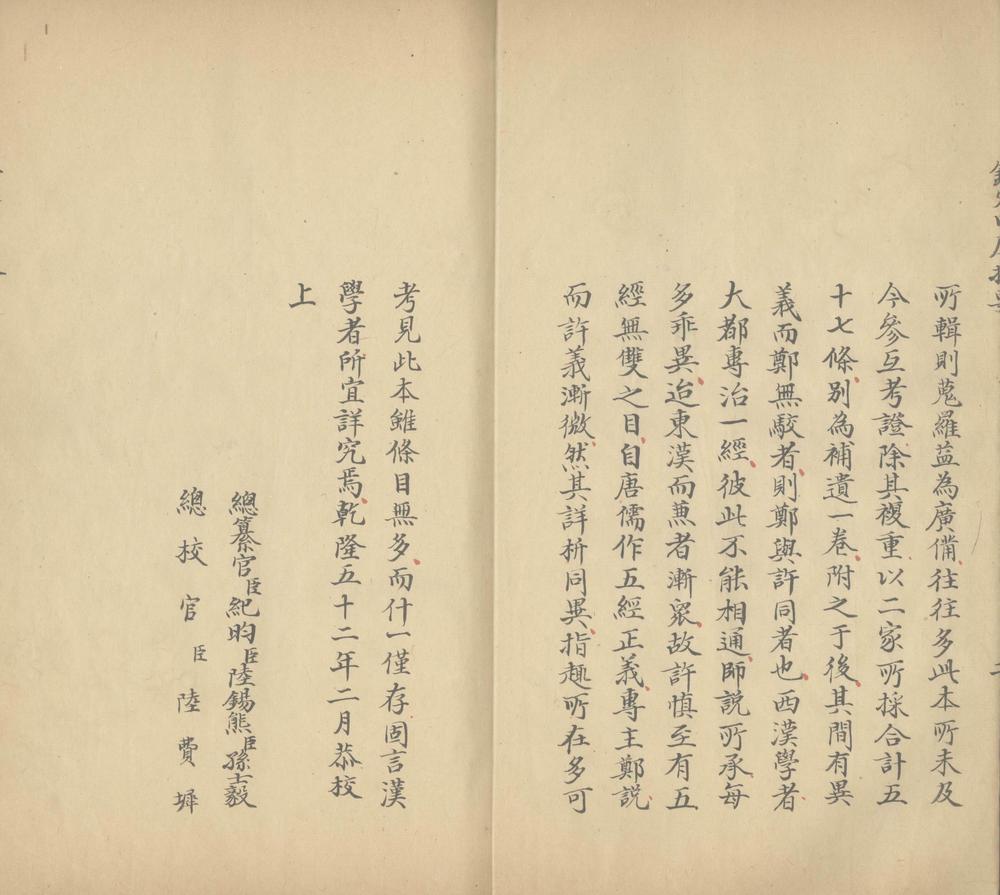 所輯則蒐羅益為廣備往往多此本所未及
今參互考證除其複重以二家所採合計五
十七條別為補遺一卷附之于後其間有異
義而鄭無駁者則鄭與許同者也西漢學者
大都專治一經彼此不能相通師説所承每
多乖異迨東漢而兼者漸衆故許慎至有五
經無雙之目自唐儒作五經正義專主鄭説
而許義漸微然其詳析同異指趣所在多可
考見此本雖條目無多而什一僅存固言漢
學者所宜詳究焉乾隆五十二年二月恭校
上
總纂官臣紀昀臣陸錫熊臣孫士毅
總校官臣陸費墀